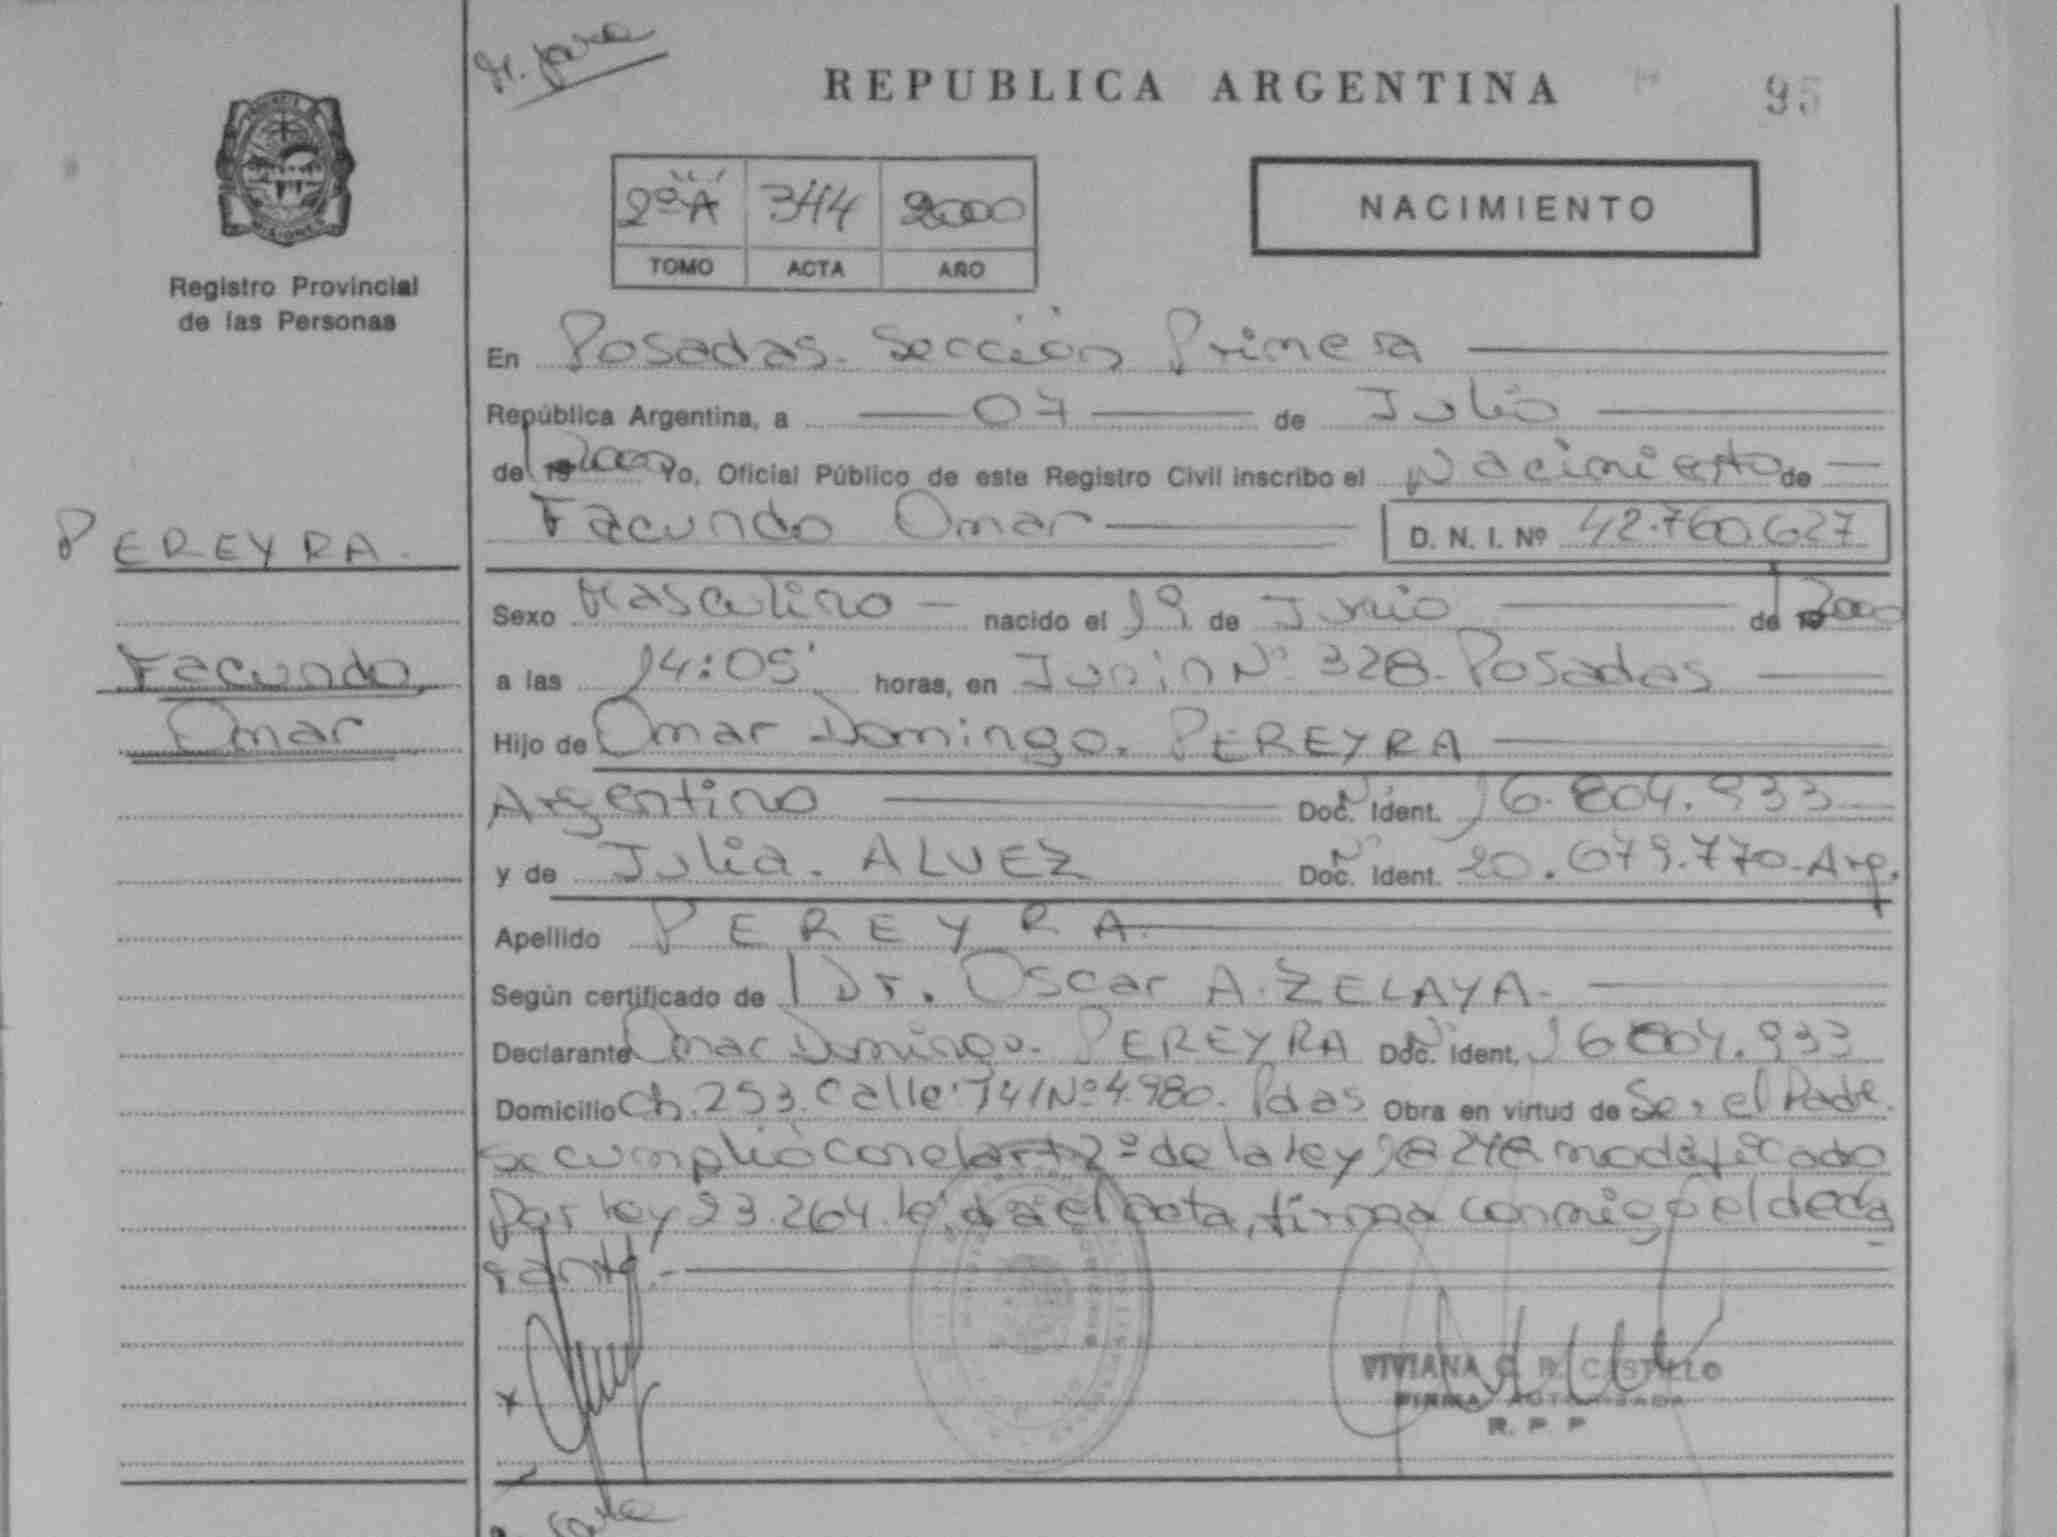 REPUBLICA ARGENTINA
95
2º A 344 2000
TOMO ACTA AÑO
NACIMIENTO
MISIONES
Registro Provincial
de las Personas
En Posadas. Sección Primera
República Argentina, a 07 de Julio
de 19 2000 Yo, Oficial Público de este Registro Civil inscribo el Nacimiento de
Facundo Omar D. N. I. Nº 42.760.627
PEREYRA.
Facundo
Omar
Sexo Masculino nacido el 19 de Junio de 19 2000
a las 14:05' horas, en Junin Nº 328. Posadas
Hijo de Omar Domingo. PEREYRA
Argentino Doc. Ident. Nº 16.804.933
y de Julia. ALVEZ Doc. Ident. Nº 20.679.770-Arg.
Apellido PEREYRA.
Según certificado de Dr. Oscar A. ZELAYA.
Declarante Omar Domingo. PEREYRA Doc. Ident. Nº 16.804.933
Domicilio Ch. 253. Calle 141 Nº 4.980. Pdas Obra en virtud de Ser el Padre.
Se cumplió con el art 2º de la ley 18248 modificado
Por ley 23.264. leída el acta, firma conmigo el decla
rante.-
VIVIANA CASTILLO
FIRMA AUTORIZADA
R. P. P